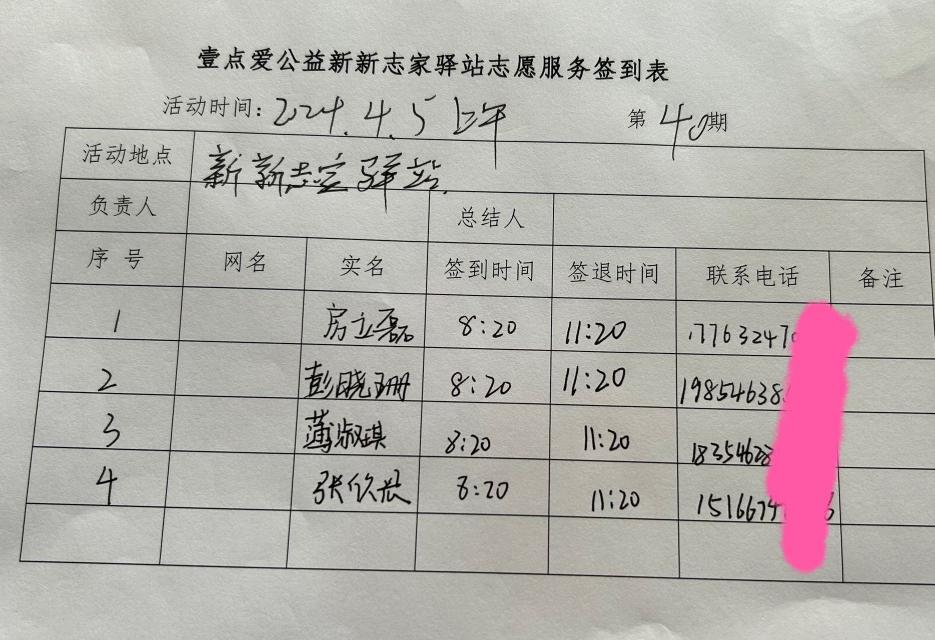 壹点爱公益新新志家驿站志愿服务签到表
活动时间：2024.4.5 上午 第 40 期
活动地点 新新志家驿站
负责人 总结人
序号 网名 实名 签到时间 签退时间 联系电话 备注
1 房立磊 8:20 11:20 17763247
2 彭晓珊 8:20 11:20 19854638
3 薄淑琪 8:20 11:20 18354628
4 张欣 8:20 11:20 1516674